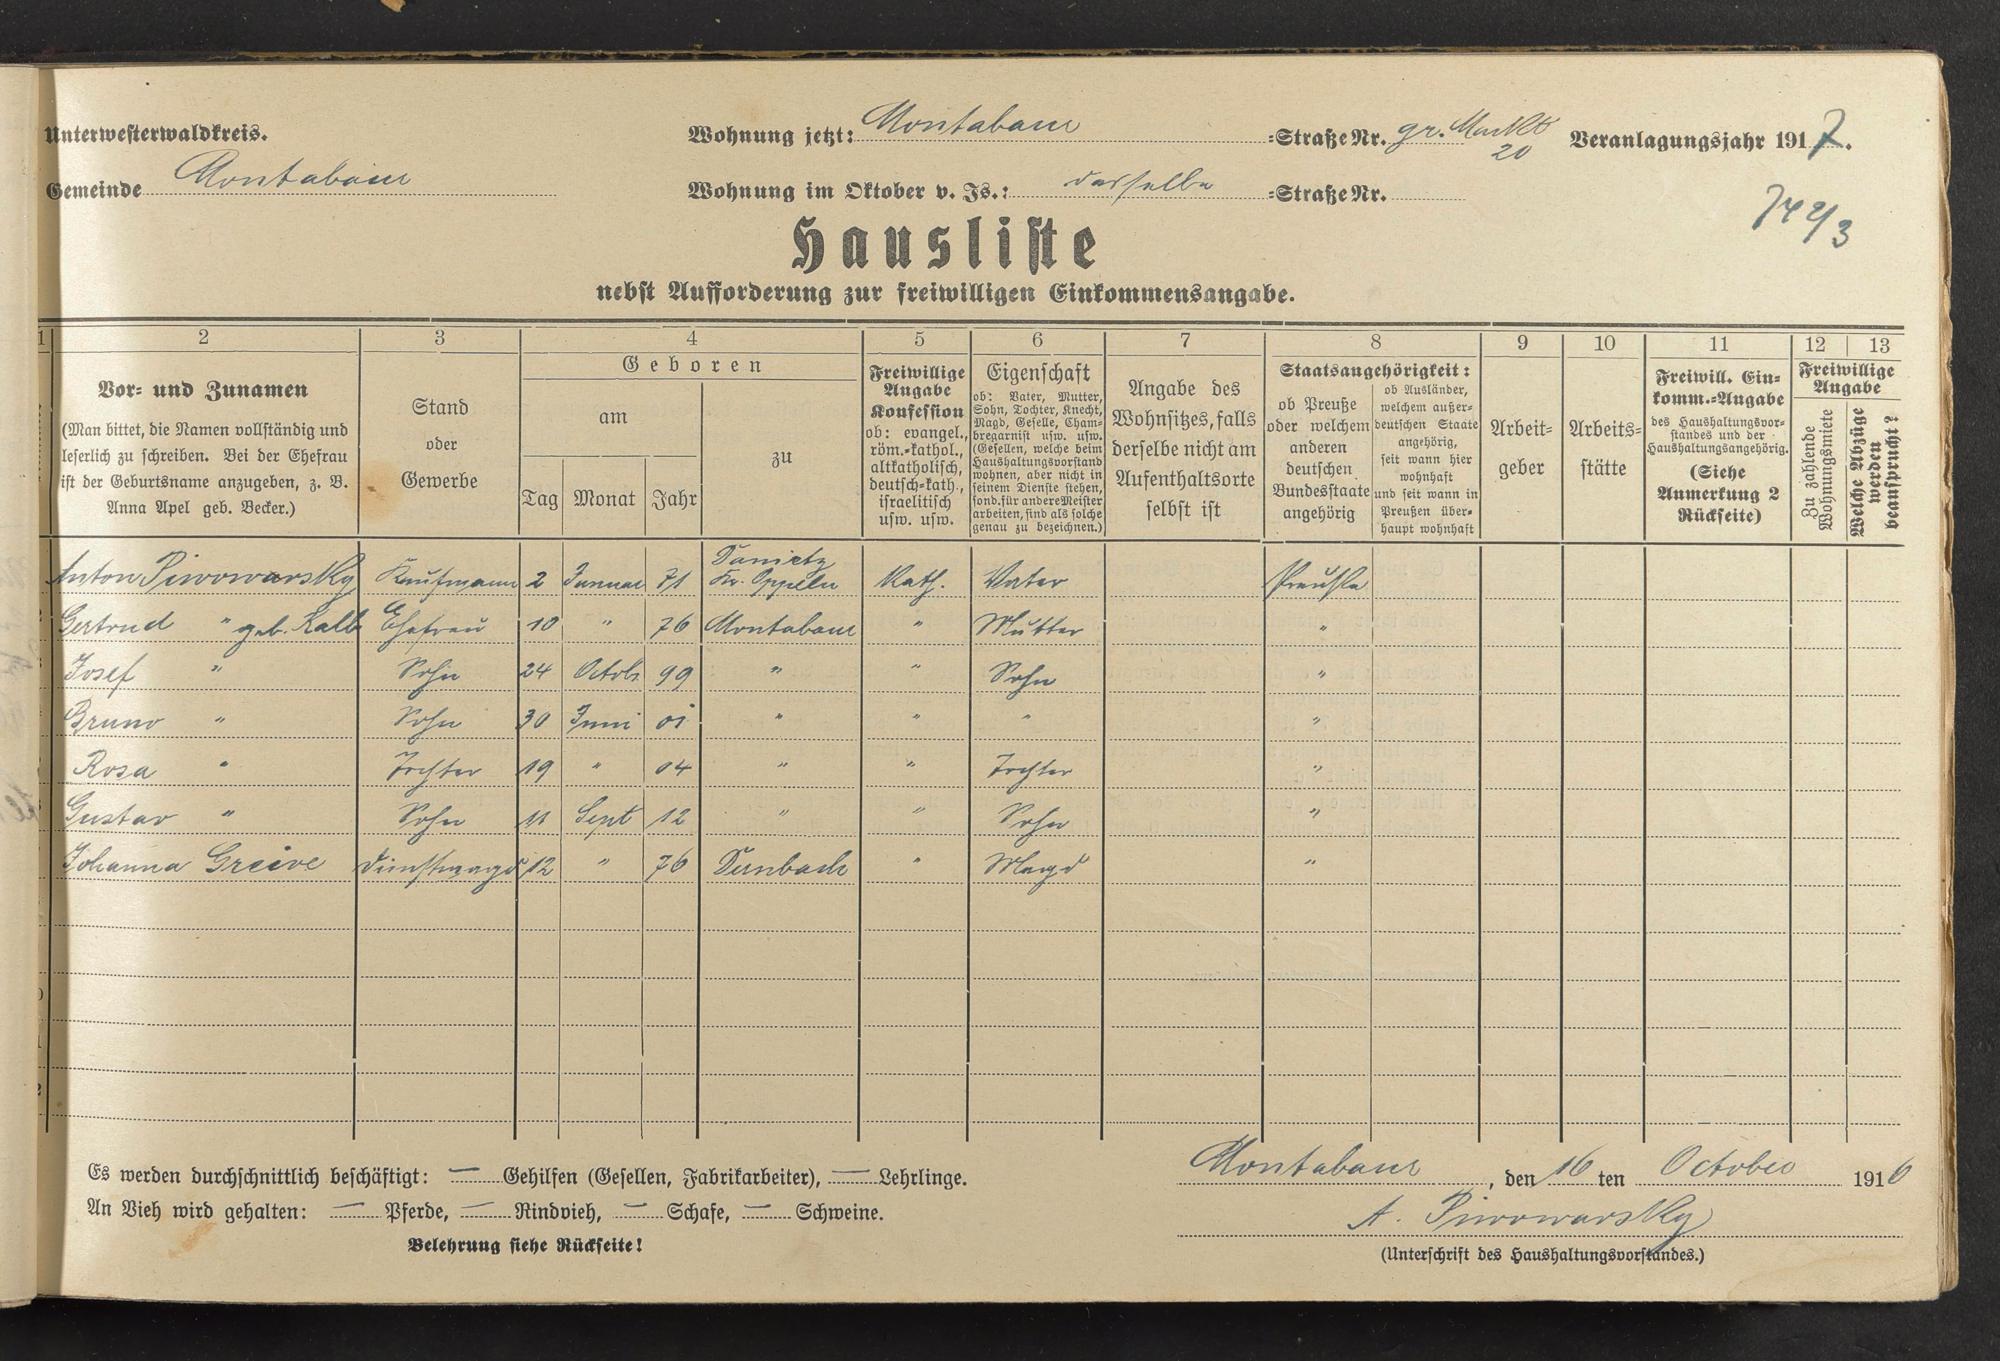 Unterwesterwaldkreis.
Wohnung jetzt: Montabaur -Straße Nr. gr. Markt 20
Veranlagungsjahr 1917.
Gemeinde Montabaur
Wohnung im Oktober v. Js.: dasselbe -Straße Nr.
Hausliste
nebst Aufforderung zur freiwilligen Einkommensangabe.
1 2 3 4 5 6 7 8 9 10 11 12 13
Vor- und Zunamen
(Man bittet, die Namen vollständig und
leserlich zu schreiben. Bei der Ehefrau
ist der Geburtsname anzugeben, z. B.
Anna Apel geb. Becker.)
Stand
oder
Gewerbe
Geboren
am
Tag Monat Jahr
zu
Freiwillige
Angabe
Konfession
ob: evangel.,
röm.-kathol.,
altkatholisch,
deutsch-kath.,
israelitisch
usw. usw.
Eigenschaft
ob: Vater, Mutter,
Sohn, Tochter, Knecht,
Magd, Geselle, Cham-
bregarnist usw. usw.
(Gesellen, welche beim
Haushaltungsvorstand
wohnen, aber nicht in
seinem Dienste stehen,
sond. für andere Meister
arbeiten, sind als solche
genau zu bezeichnen.)
Angabe des
Wohnsitzes, falls
derselbe nicht am
Aufenthaltsorte
selbst ist
Staatsangehörigkeit:
ob Preuße
oder welchem
anderen
deutschen
Bundesstaate
angehörig
ob Ausländer,
welchem außer-
deutschen Staate
angehörig,
seit wann hier
wohnhaft
und seit wann in
Preußen über-
haupt wohnhaft
Arbeit-
geber
Arbeits-
stätte
Freiwill. Ein-
komm.-Angabe
des Haushaltungsvor-
standes und der
Haushaltungsangehörig.
(Siehe
Anmerkung 2
Rückseite)
Freiwillige
Angabe
Zu zahlende
Wohnungsmiete
Welche Abzüge
werden
beansprucht?
Anton Piwowarsky Kaufmann 2 Januar 71 Danietz Kr. Oppeln Kath. Vater Preuße
Gertrud " geb. Kalb Ehefrau 10 " 76 Montabaur " Mutter "
Josef " Sohn 24 Octobr. 99 " " Sohn "
Bruno " Sohn 30 Juni 01 " " " "
Rosa " Tochter 19 " 04 " " Tochter "
Gustav " Sohn 11 Sept 12 " " Sohn "
Johanna Greive Dienstmagd 12 " 76 Dernbach " Magd "
Es werden durchschnittlich beschäftigt: — Gehilfen (Gesellen, Fabrikarbeiter), — Lehrlinge.
An Vieh wird gehalten: — Pferde, — Rindvieh, — Schafe, — Schweine.
Belehrung siehe Rückseite!
Montabaur, den 16 ten October 1916
A. Piwowarsky
(Unterschrift des Haushaltungsvorstandes.)